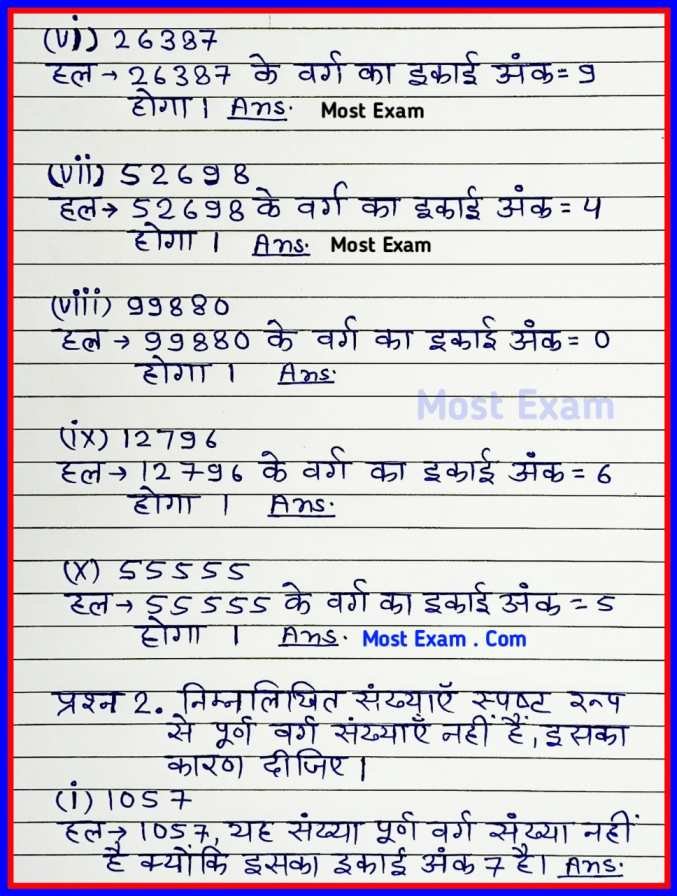 (vi) 26387
हल → 26387 के वर्ग का इकाई अंक = 9
होगा । Ans. Most Exam
(vii) 52698
हल → 52698 के वर्ग का इकाई अंक = 4
होगा । Ans. Most Exam
(viii) 99880
हल → 99880 के वर्ग का इकाई अंक = 0
होगा । Ans.
Most Exam
(ix) 12796
हल → 12796 के वर्ग का इकाई अंक = 6
होगा । Ans.
(x) 55555
हल → 55555 के वर्ग का इकाई अंक = 5
होगा । Ans. Most Exam . Com
प्रश्न 2. निम्नलिखित संख्याएँ स्पष्ट रूप
से पूर्ण वर्ग संख्याएँ नहीं हैं, इसका
कारण दीजिए ।
(i) 1057
हल → 1057, यह संख्या पूर्ण वर्ग संख्या नहीं
है क्योंकि इसका इकाई अंक 7 है। Ans.